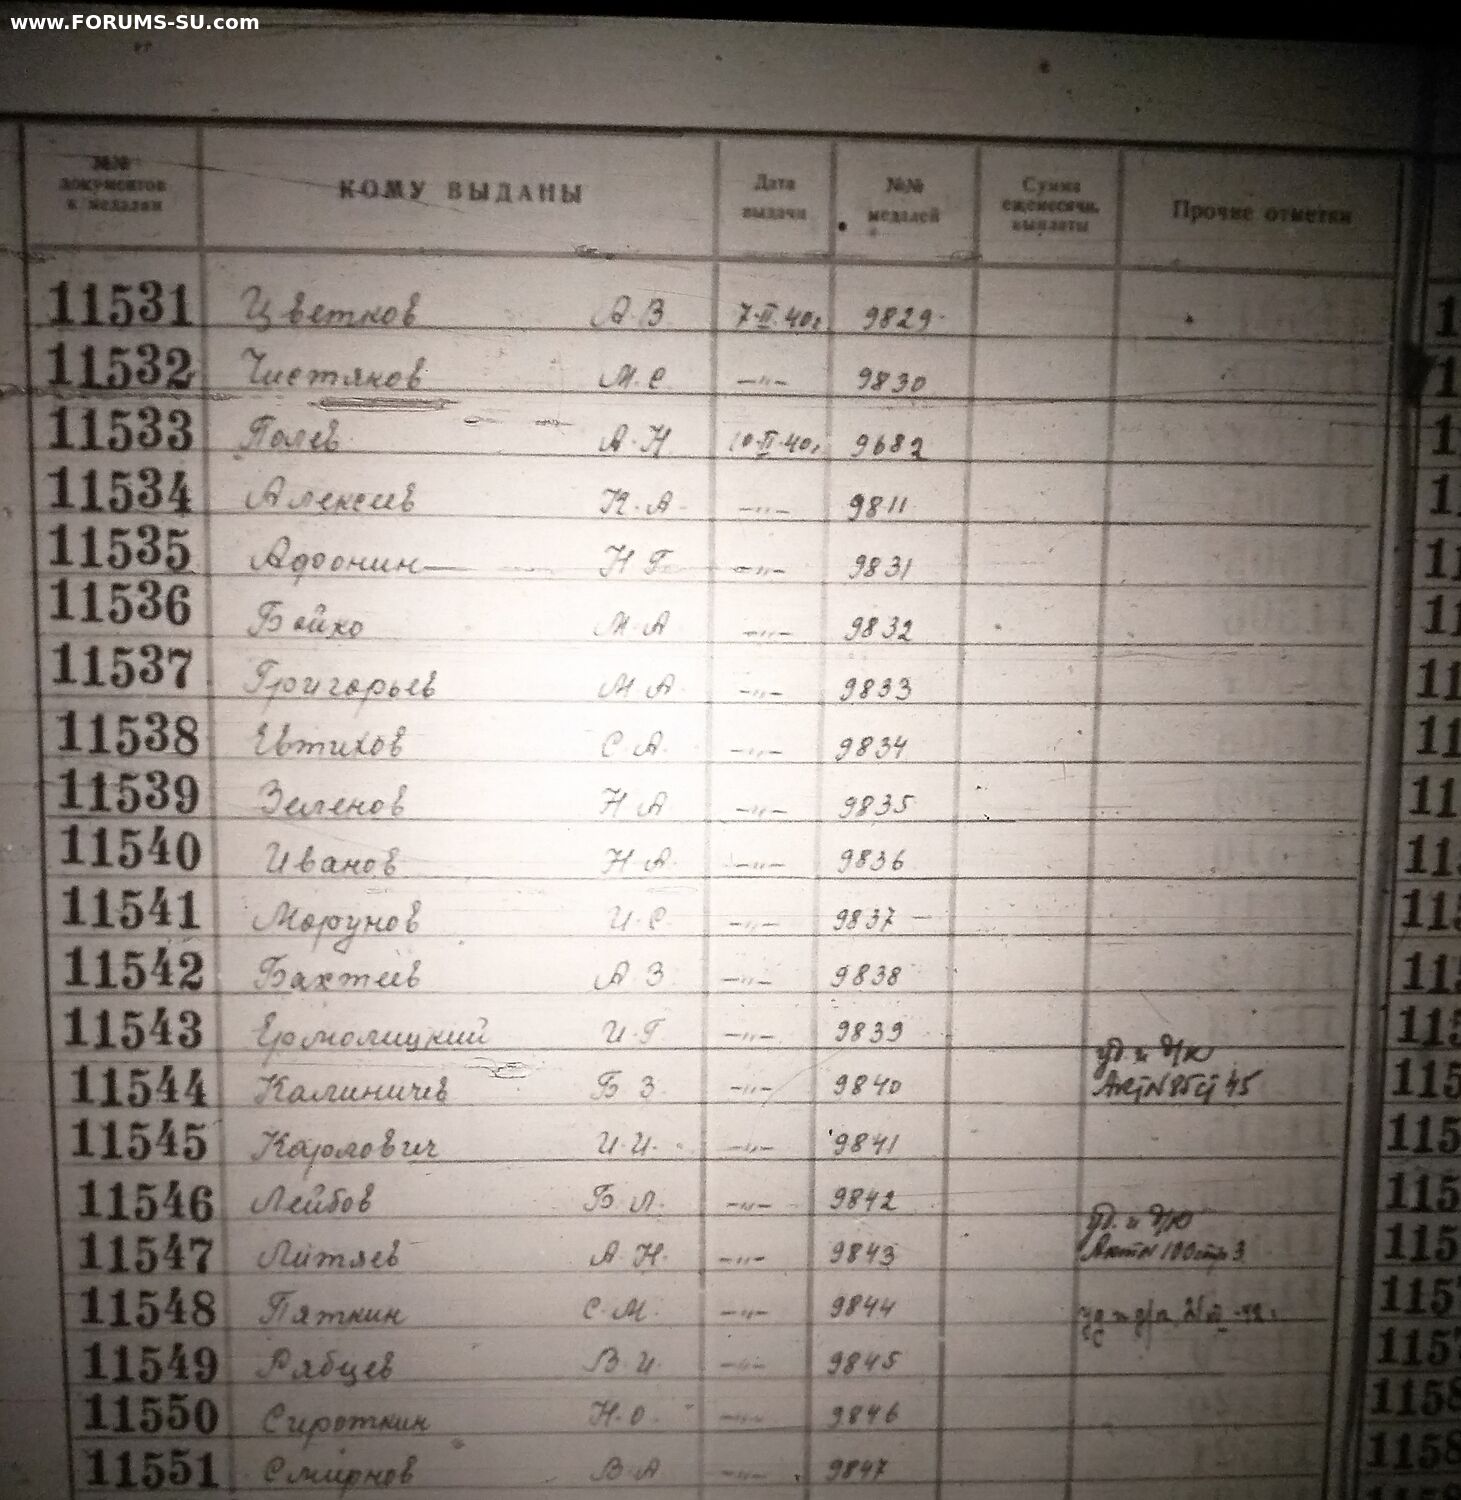 www.FORUMS-SU.com
№№ документов к медали КОМУ ВЫДАНЫ Дата выдачи №№ медалей Сумма ежемесячн. выплаты Прочие отметки
11531 Цветков А. В 7.II.40г 9829
11532 Чистяков М. С —"— 9830
11533 Полев А. Н 10.II.40г 9682
11534 Алексеев К. А —"— 9811
11535 Афонин Н Г —"— 9831
11536 Бойко М. А —"— 9832
11537 Григорьев М А —"— 9833
11538 Евтихов С. А. —"— 9834
11539 Зеленов Н А —"— 9835
11540 Иванов Н. А. —"— 9836
11541 Моргунов И. С —"— 9837
11542 Бахтеев А З —"— 9838
11543 Ермолицкий И. Г —"— 9839
11544 Калиничев Б З —"— 9840 Акт N 85
11545 Карлович И. И. —"— 9841
11546 Лейбов Б Л. —"— 9842
11547 Литяев А. Н. —"— 9843 Акт N 100 стр 3
11548 Пяткин С. М. —"— 9844
11549 Рябцев В. И —"— 9845
11550 Сироткин Н. О. —"— 9846
11551 Смирнов В А —"— 9847